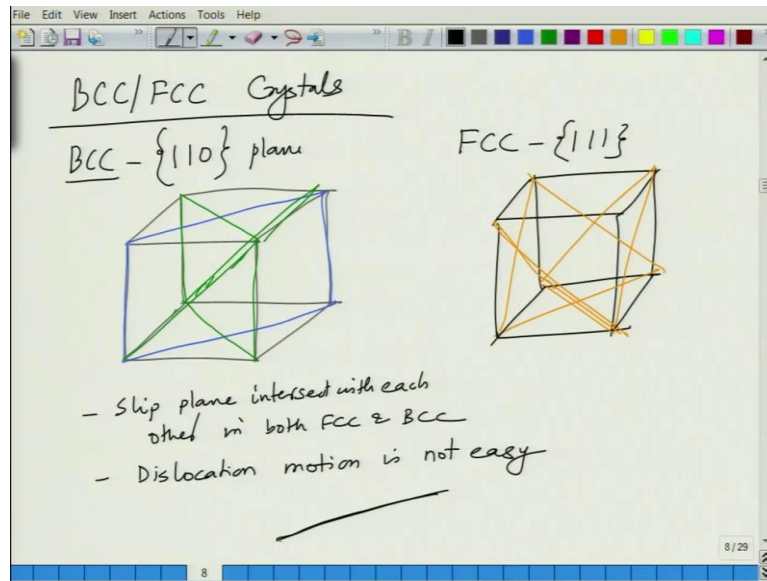 File Edit View Insert Actions Tools Help
B I
BCC/FCC Crystals
BCC - {110} plane
FCC - {111}
- Slip plane intersect with each
other in both FCC & BCC
- Dislocation motion is not easy
8/29
8